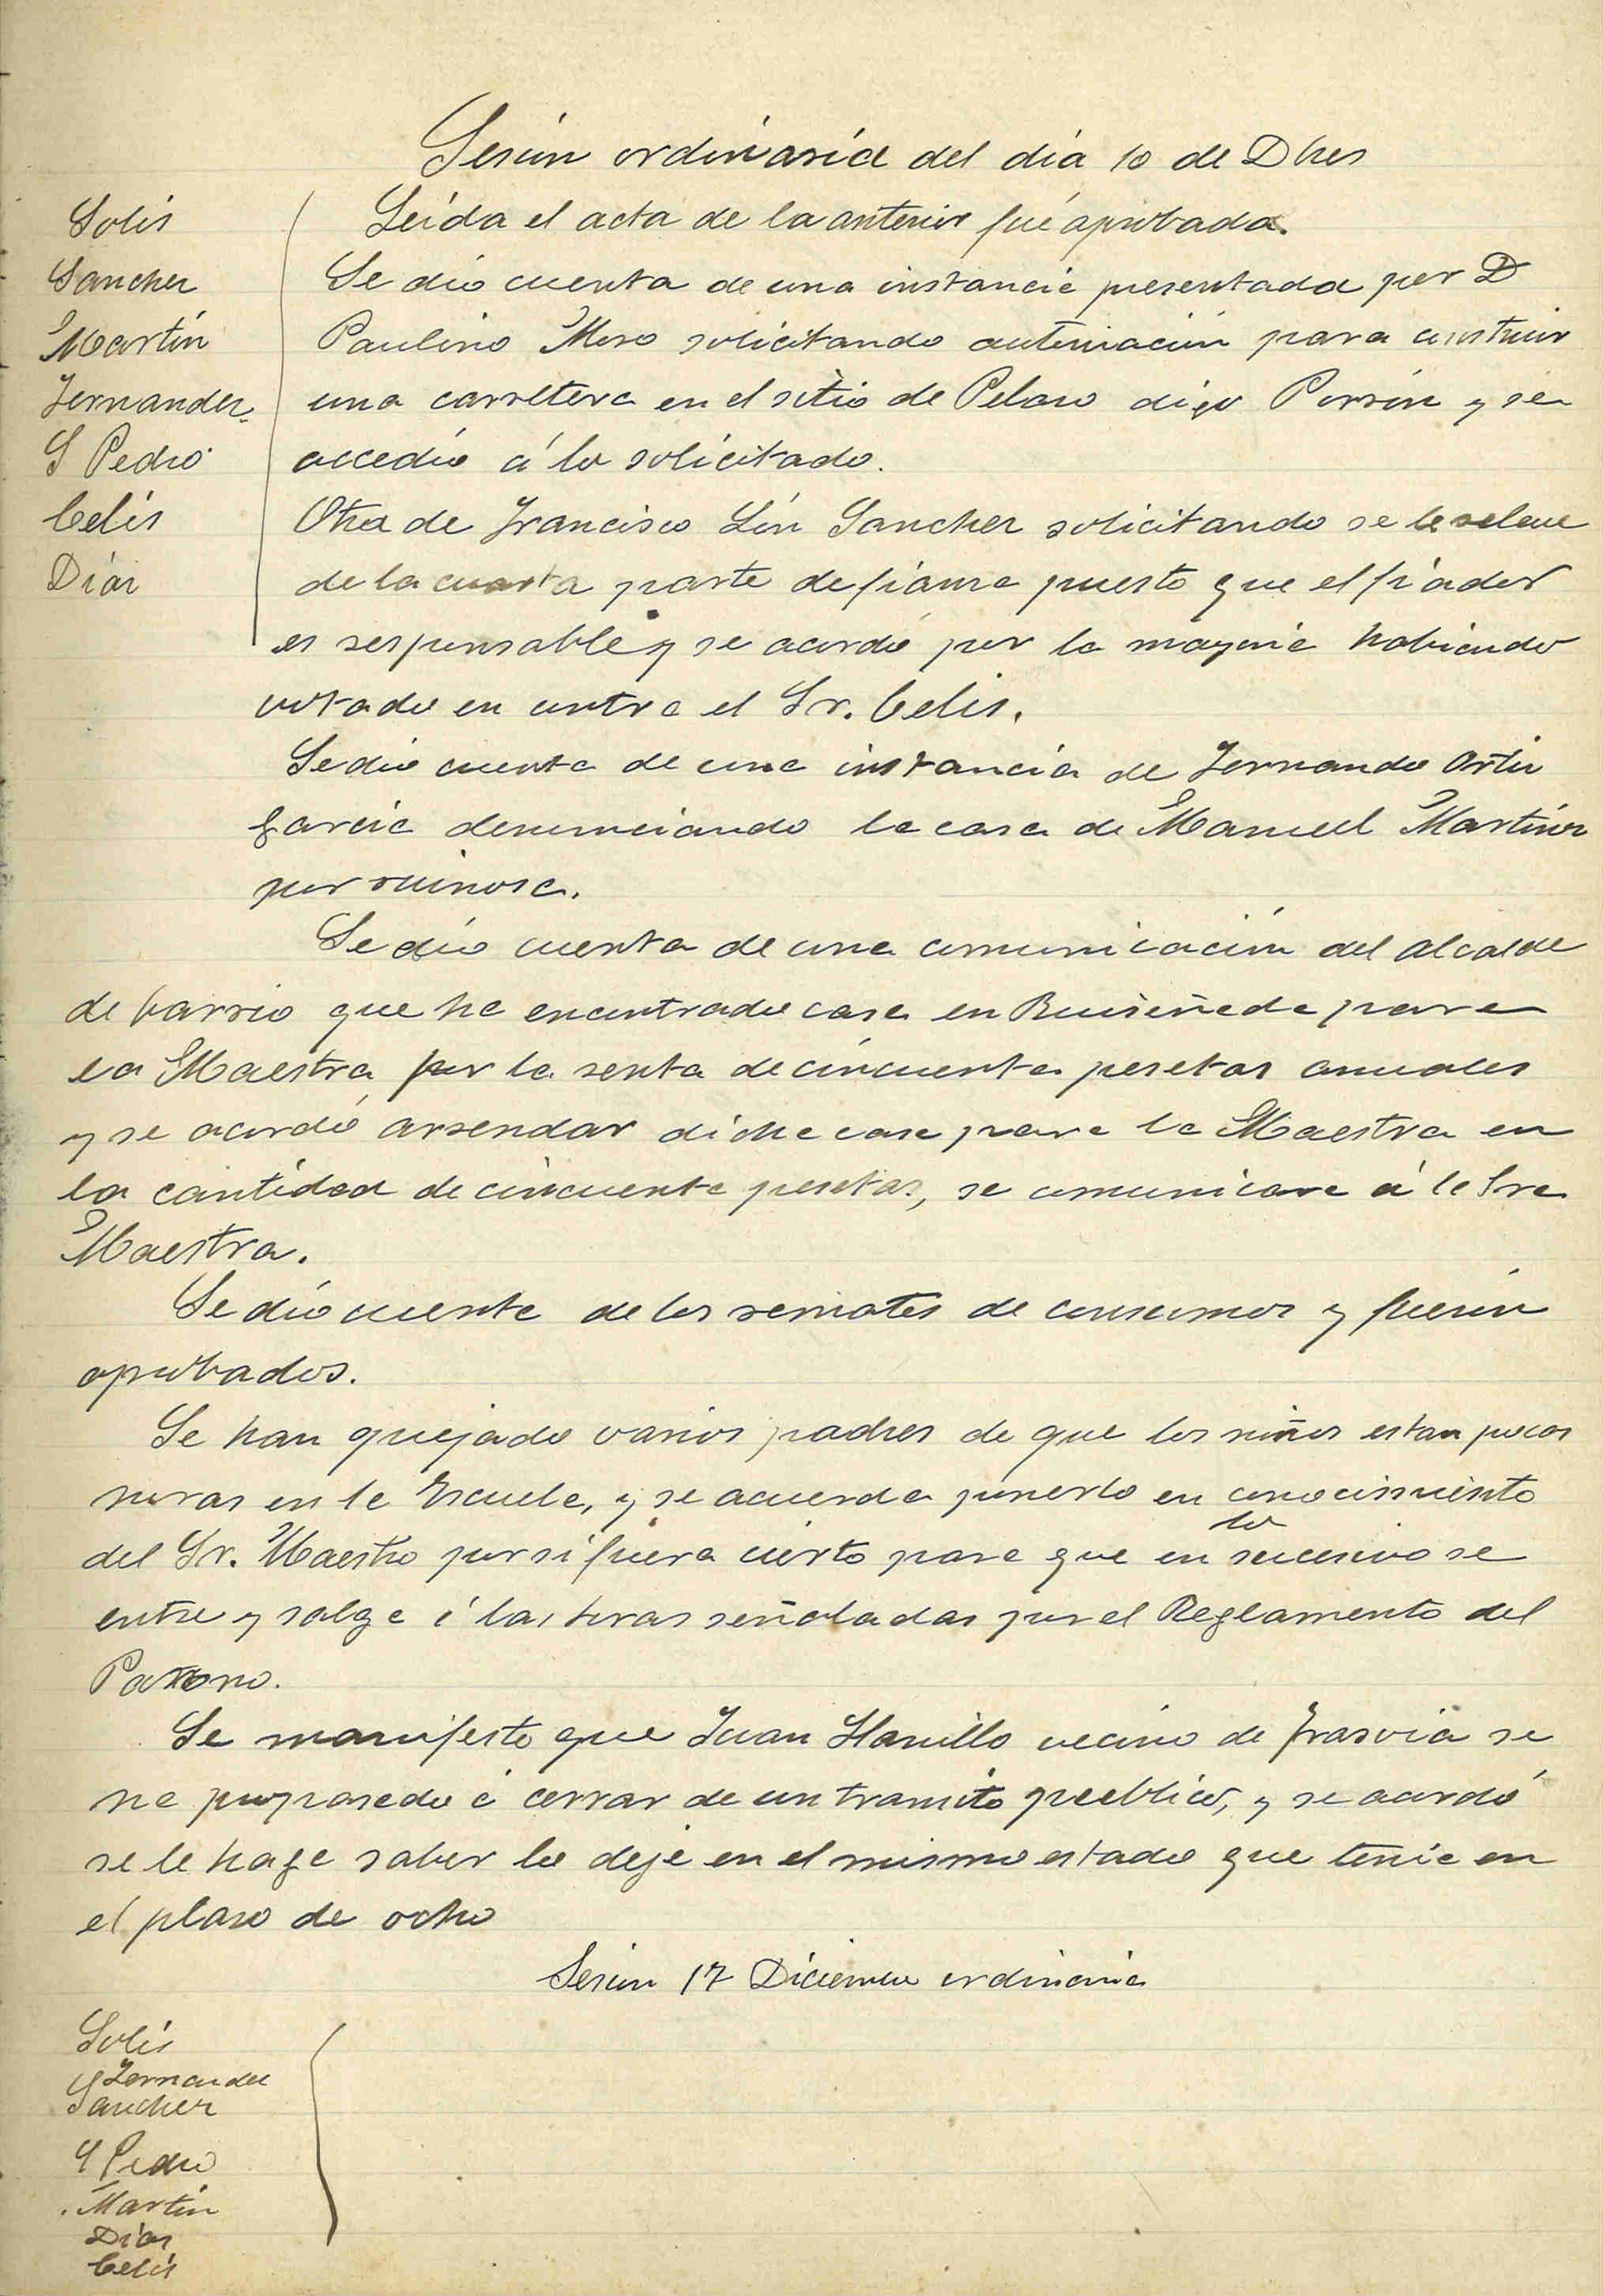 Sesión ordinaria del día 10 de Dbre
Solis
Sanchez
Martín
Fernandez
S Pedro
Celis
Díaz
Leída el acta de la anterior fué aprobada.
Se dío cuenta de una instancia presentada por D
Paulino Moro solicitando autorización para construir
una carretera en el sitio de Pelaro digo Porrón y se
accedío á lo solicitado.
Otra de Francisco Sanchez solicitando se le releve
de la cuarta parte de fianza puesto que el fíador
es responsable y se acordó por la mayoría habiendo
votado en contra el Sr. Celis.
Se dío cuenta de una instancía de Fernando Ortiz
García denunciando la casa de Manuel Martínez
por ruinosa.
Se dío cuenta de una comunicación del alcalde
de barrio que ha encontrado casa en Ruiseñada para
la Maestra por la renta de cincuenta pesetas anuales
y se acordó arrendar dicha casa para la Maestra en
la cantidad de cincuenta pesetas, se comunicara á la Sra
Maestra.
Se dío cuenta de los remates de consumos y fueron
aprobados.
Se han quejado varios padres de que los niños estan pocas
horas en la Escuela, y se acuerda ponerlo en conocimiento
del Sr. Maestro por si fuera cierto para que en lo sucesivo se
entre y salga á las horas señaladas por el Reglamento del
Patrono.
Se manifesto que Juan vecino de Trasvía se
ha propasado á cerrar de un transito publico, y se acordó
se le haga saber lo deje en el mismo estado que tenía en
el plazo de ocho
Sesion 17 Diciembre ordinaria
Solís
Fernandez
Sanchez
S Pedro
Martín
Díaz
Celís